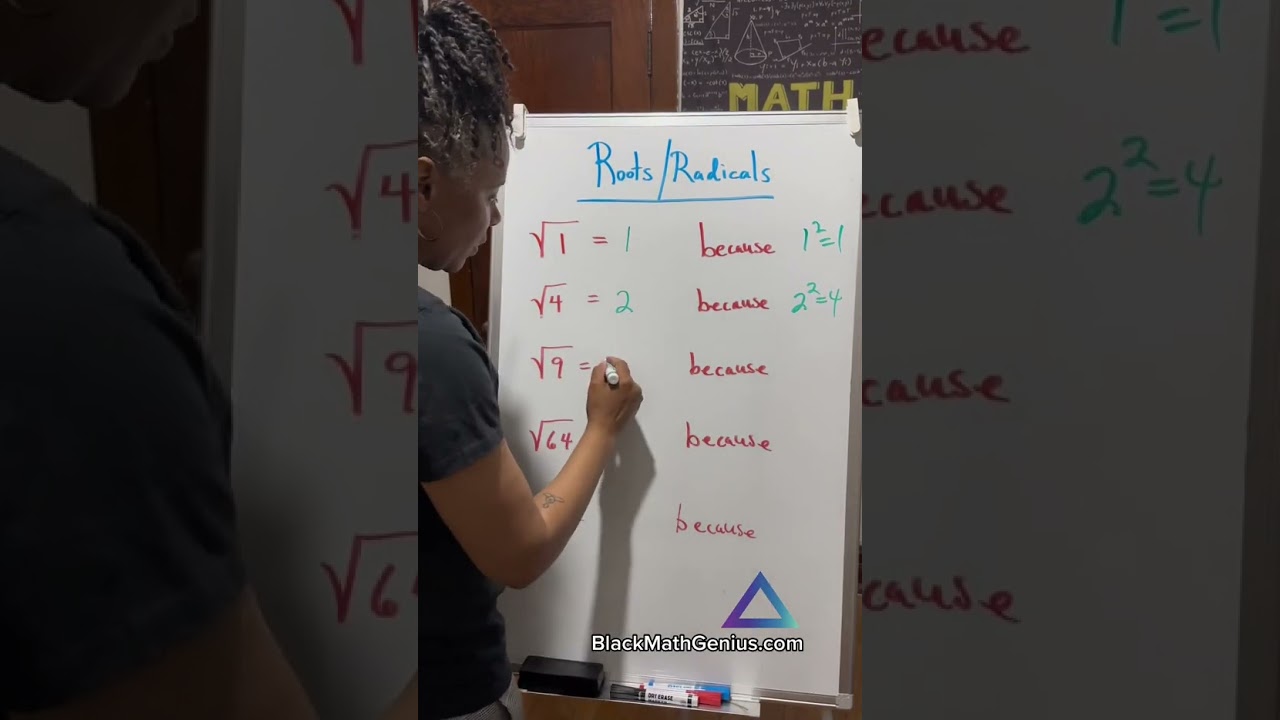 MATH
Roots/Radicals
√1 = 1 because 1²=1
√4 = 2 because 2²=4
√9 = because
√64 because
because
BlackMathGenius.com
DRY ERASE